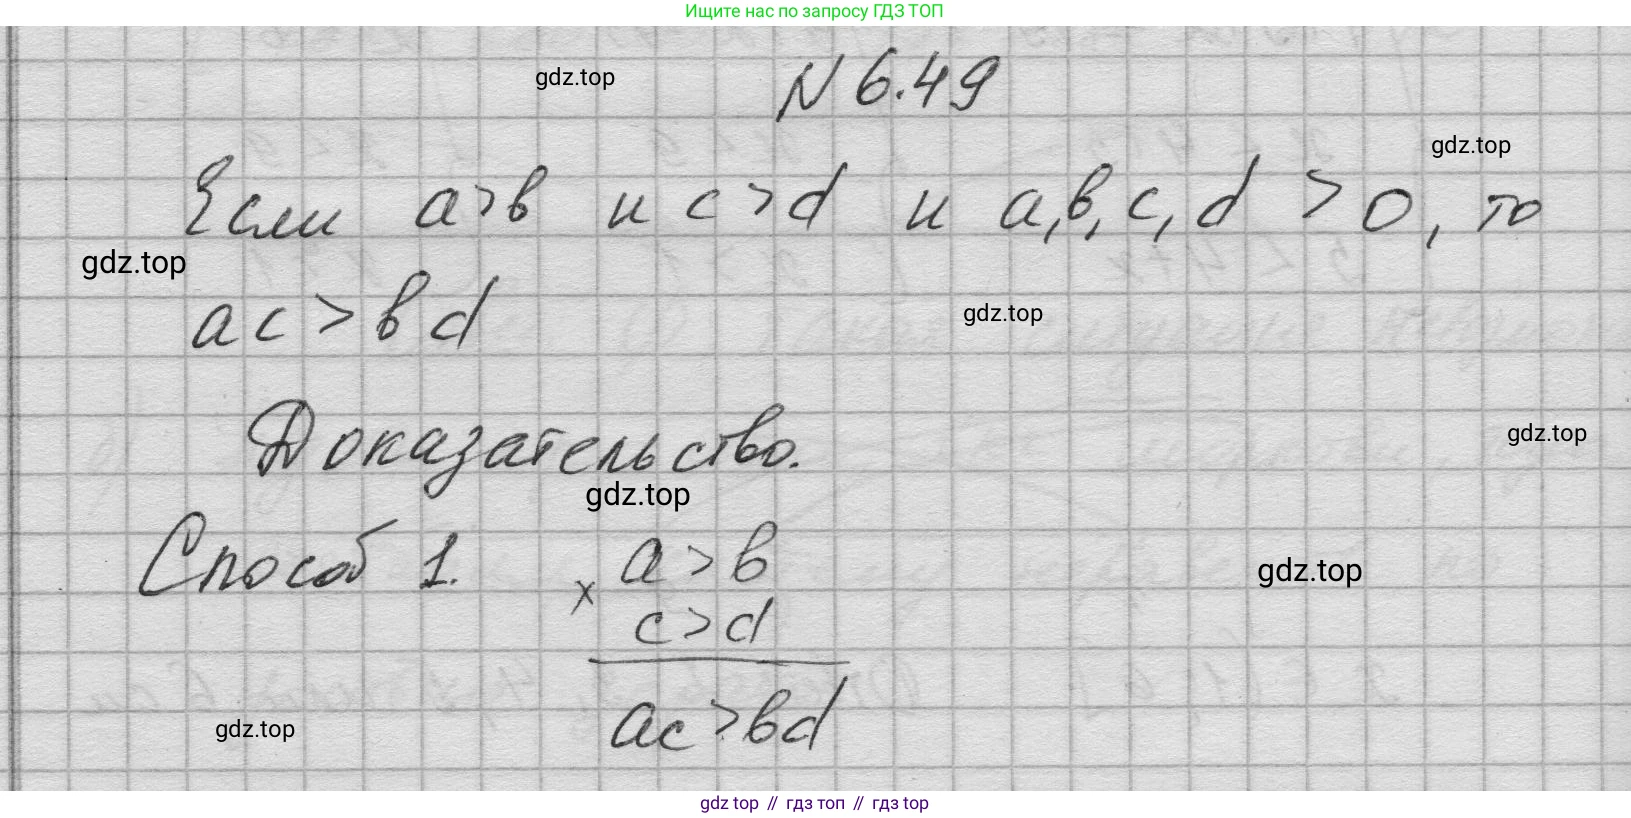 Ищите нас по запросу ГДЗ ТОП
gdz.top
N 6.49
gdz.top
Если a>b и c>d и a,b,c,d > 0, то
gdz.top
ac > bd
gdz.top
Доказательство.
gdz.top
gdz.top
Способ 1. a > b
gdz.top
×
c > d
ac > bd
gdz.top
gdz top // гдз топ // гдз top